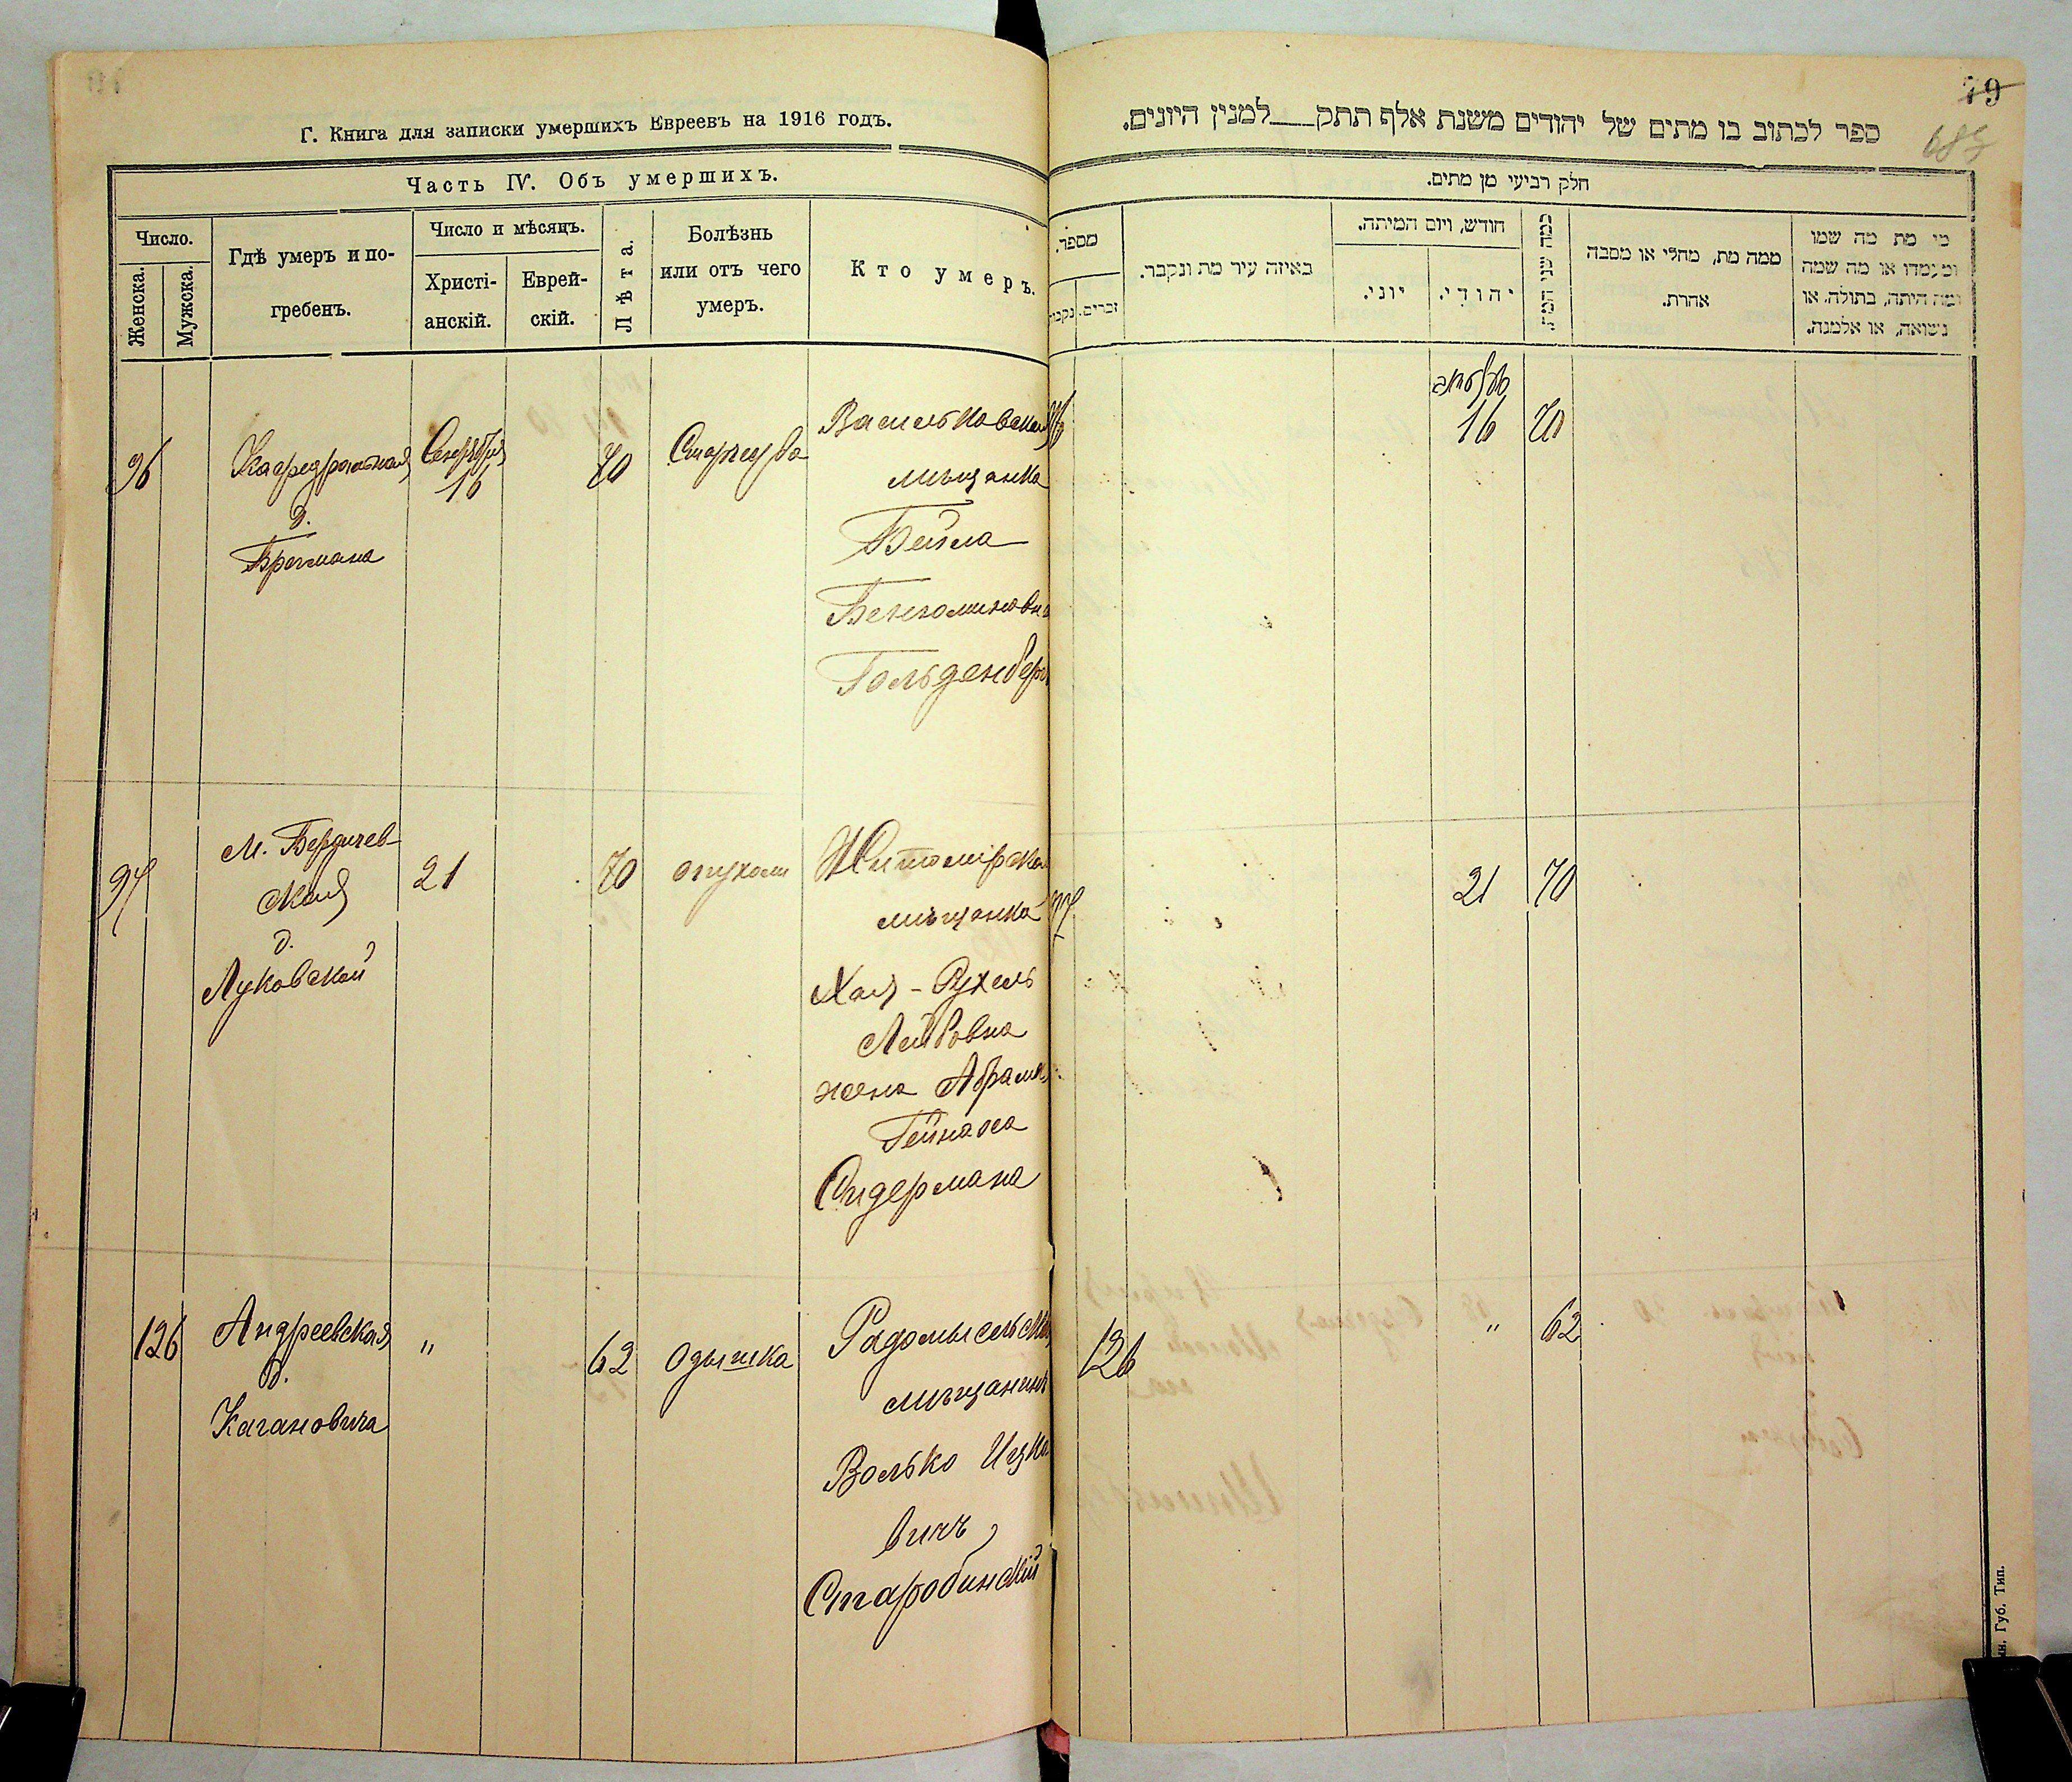 Г. Книга для записки умершихъ Евреевъ на 1916 годъ.
Часть IV. Объ умершихъ.
Число.
Женска.
Мужска.
Гдѣ умеръ и по-
гребенъ.
Число и мѣсяцъ.
Христі-
анскій.
Еврей-
скій.
Лѣта.
Болѣзнь
или отъ чего
умеръ.
Кто умеръ.
96
Кафедральная
д.
Брогмана
Сентября
16
70
Старчества
Васильковская
мѣщанка
Бейла
Бенюминовна
Гольденбергъ
97
М. Бердичев-
ская
д.
Луковской
21
70
опухоли
Житомірская
мѣщанка
Хая-Рухель
Лейбовна
жена Абрама
Гейнаха
Сидермана
126
Андреевская
д.
Кагановича
"
62
Одышка
Радомысльскій
мѣщанинъ
Волько Ицко
вичъ
Старобинскій
79
ספר לכתוב בו מתים של יהודים משנת אלף תתק___למנין היונים.
חלק רביעי מן מתים.
מספר.
נקבות
זכרים.
באיזה עיר מת ונקבר.
חודש, ויום המיתה.
יוני.
יהודי.
כמה שני המת.
ממה מת, מחלי או מסבה
אחרת.
מי מת מה שמו
ומעמדו או מה שמה
ומה היתה, בתולה, או
נשואה, או אלמנה.
96
16
70
97
21
70
126
"
62
Губ. Тип.